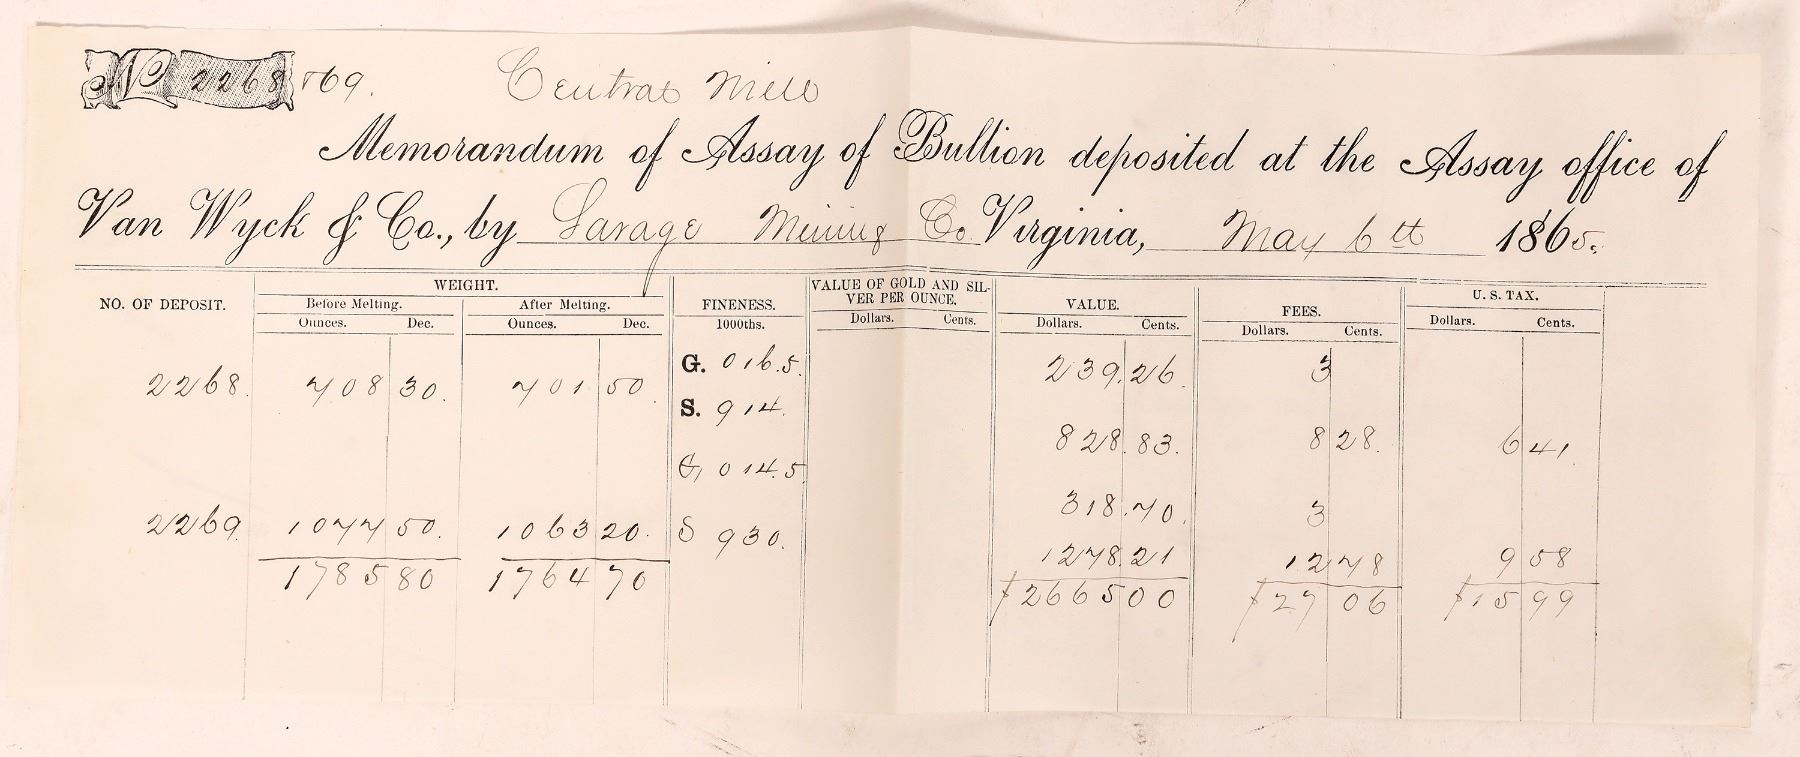 No 2268 & 69. Central Mill
Memorandum of Assay of Bullion deposited at the Assay office of
Van Wyck & Co., by Savage Mining Co. Virginia, May 6th 1865.
NO. OF DEPOSIT. WEIGHT. FINENESS. VALUE OF GOLD AND SILVER PER OUNCE. VALUE. FEES. U. S. TAX.
Before Melting. After Melting. 1000ths.
Ounces. Dec. Ounces. Dec. Dollars. Cents. Dollars. Cents. Dollars. Cents. Dollars. Cents.
2268. 708 30. 701 50. G. 016.5. 239.26. 3
S. 914. 828.83. 8 28. 6 41.
G. 014.5 318.70. 3
2269. 1077 50. 1063 20. S 930. 1278.21 12 78 9 58
1785 80 1764 70 $2665 00 $27 06 $15 99